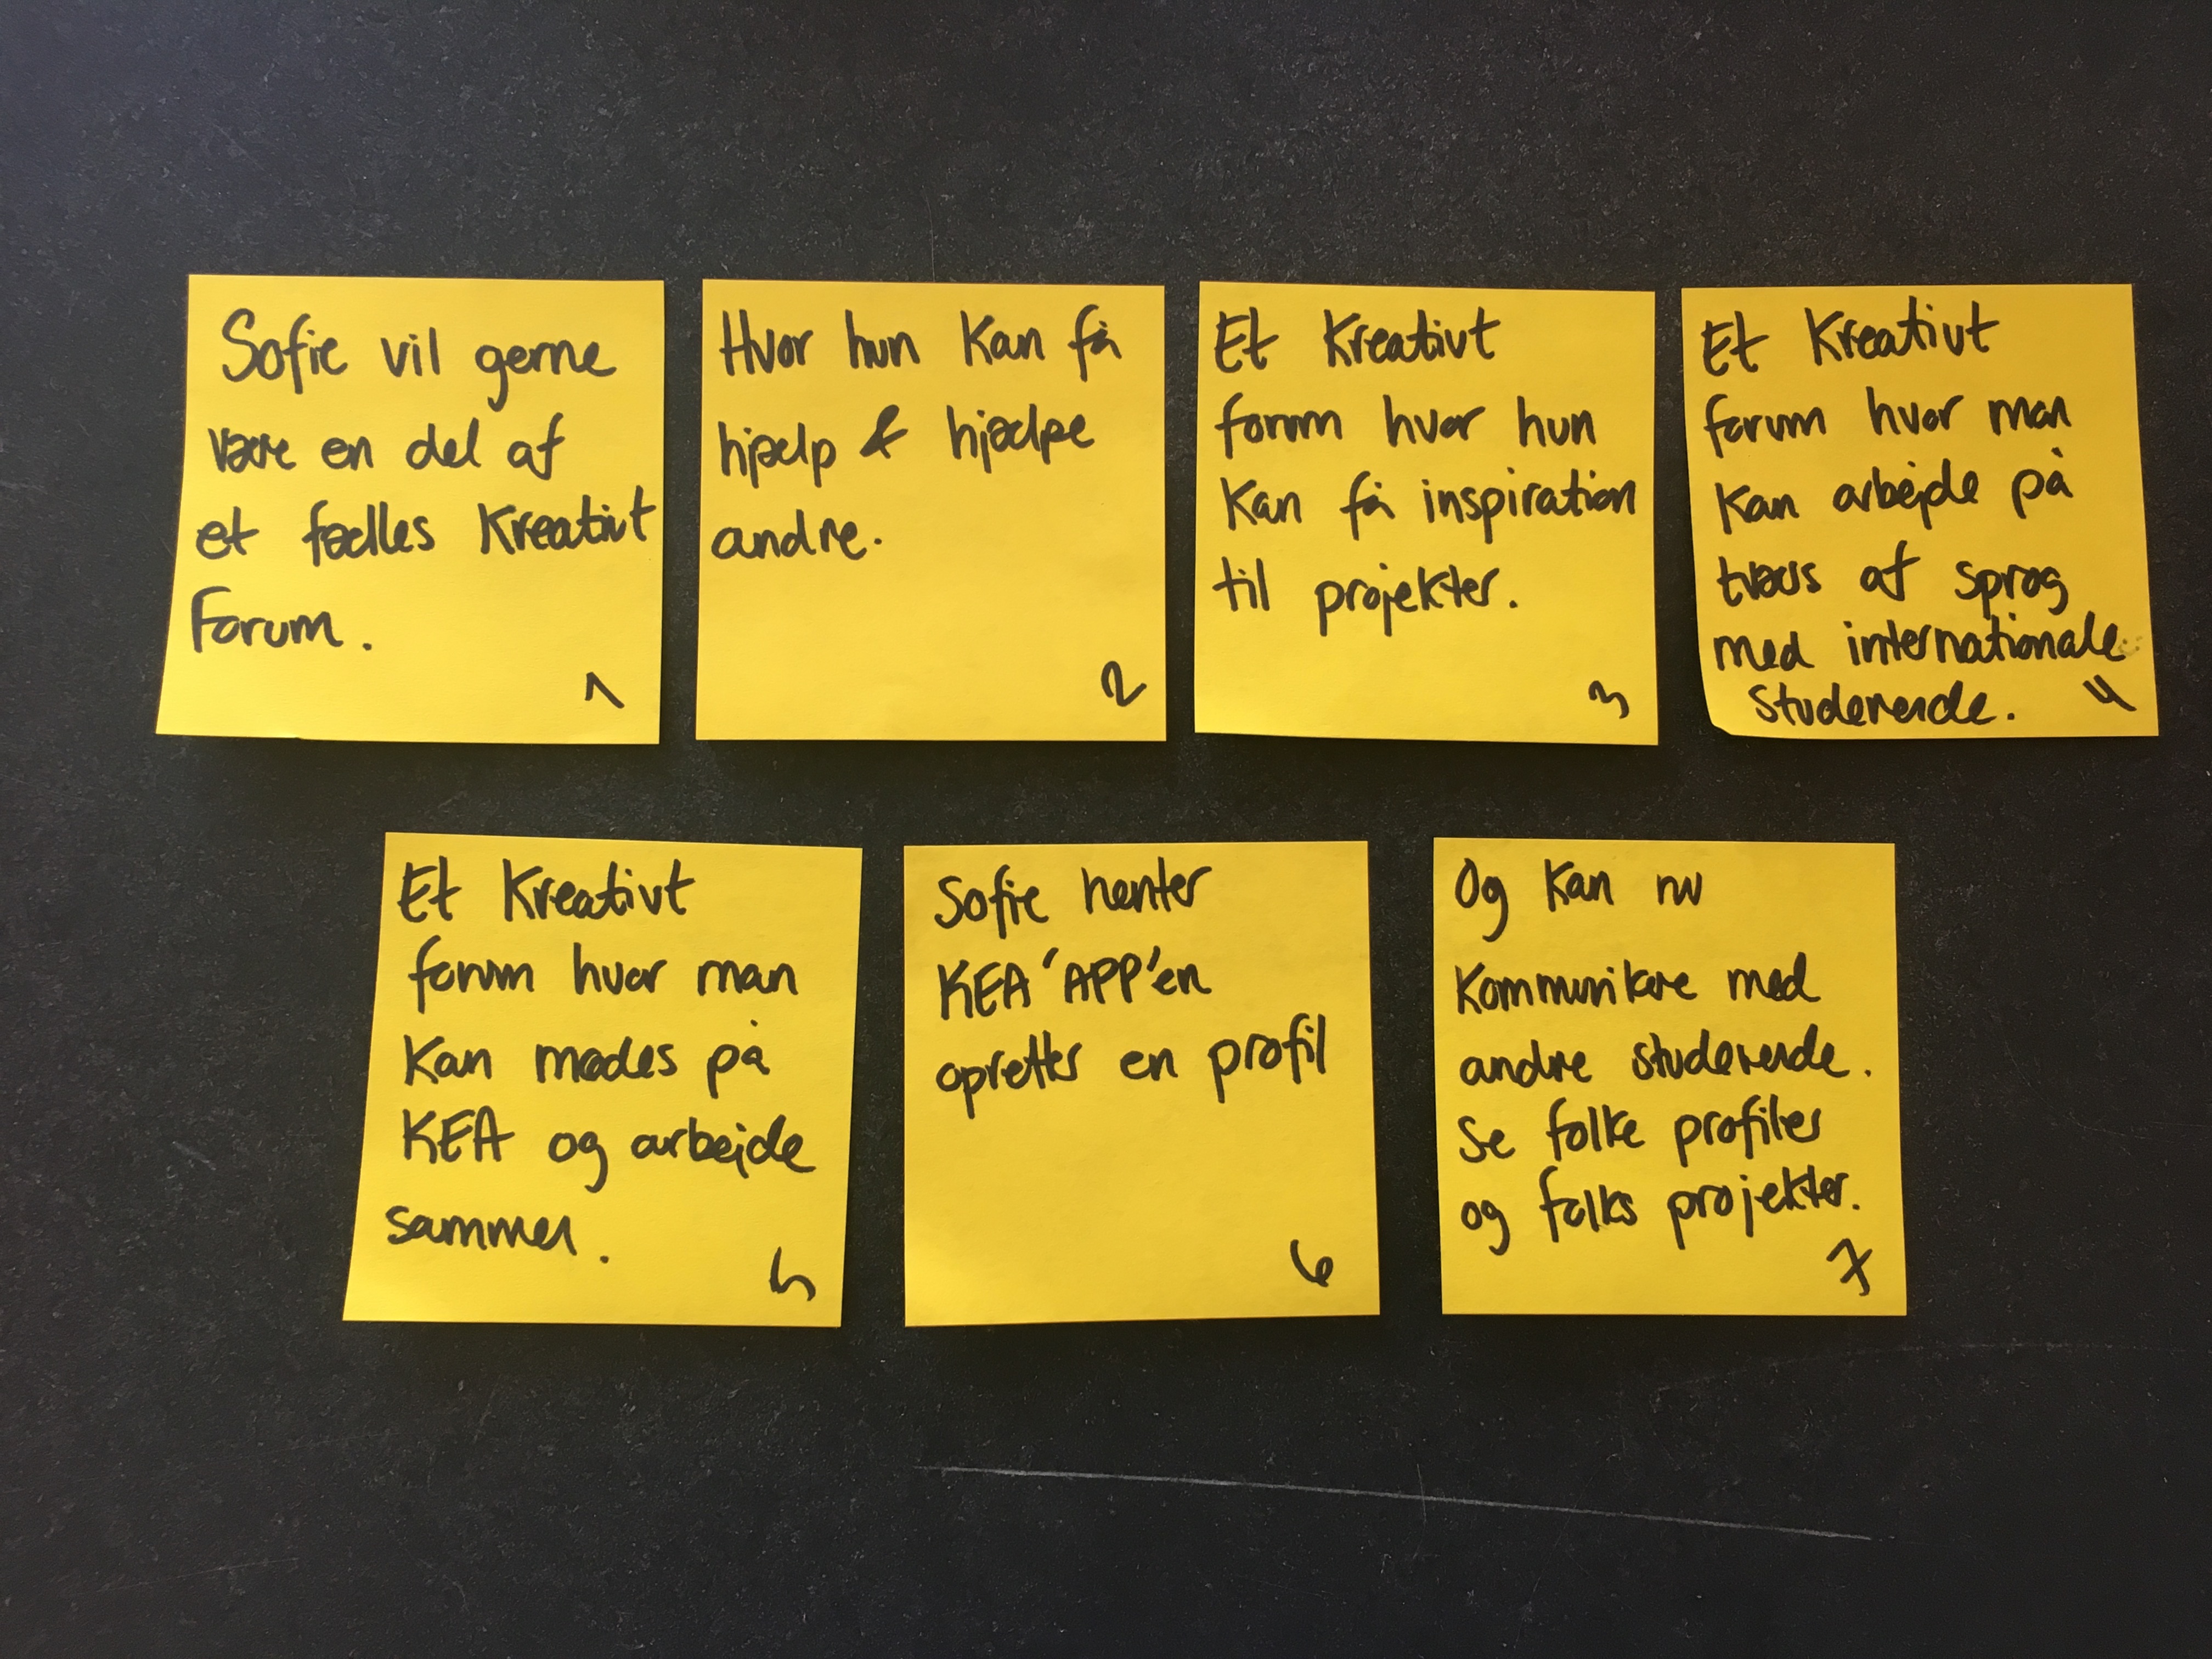 Sofie vil gerne
være en del af
et fælles Kreativt
Forum.
1
Hvor hun Kan få
hjælp & hjælpe
andre.
2
Et Kreativt
forum hvor hun
Kan få inspiration
til projekter.
3
Et Kreativt
forum hvor man
Kan arbejde på
tværs af sprog
med internationale
Studerende.
4
Et Kreativt
forum hvor man
Kan mødes på
KEA og arbejde
sammen.
5
Sofie henter
KEA 'APP'en
opretter en profil
6
Og Kan nu
Kommunikere med
andre studerende.
Se folke profiler
og folks projekter.
7